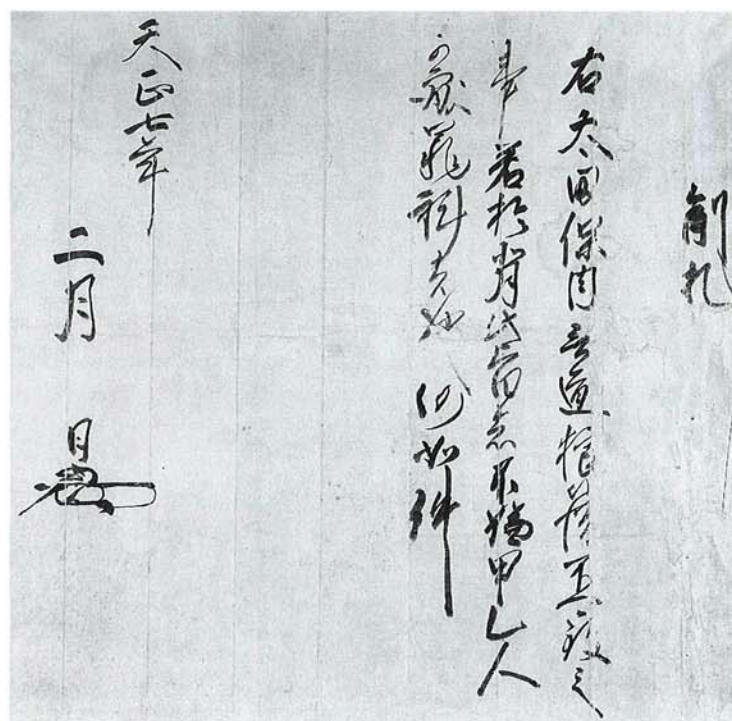 制札
右太田保内無道狼藉並
事若於背此旨者不論甲乙人
可處罪科者也仍如件
天正七年
二月 日